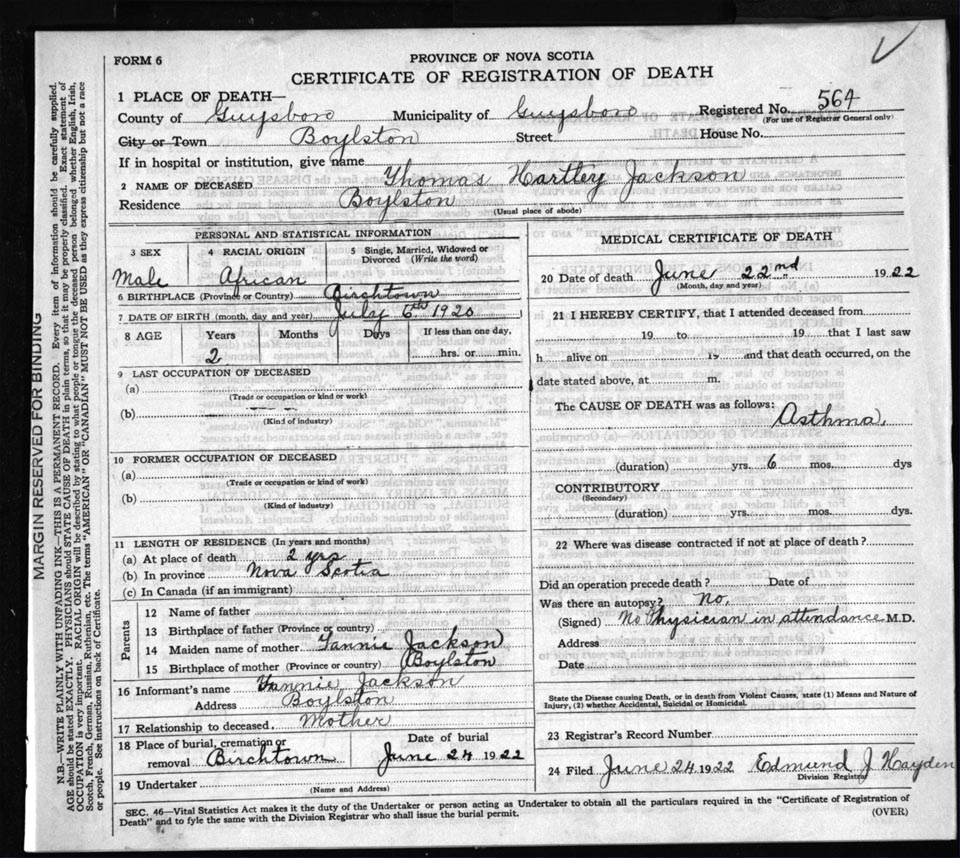 FORM 6
PROVINCE OF NOVA SCOTIA
CERTIFICATE OF REGISTRATION OF DEATH
1 PLACE OF DEATH—
County of Guysboro Municipality of Guysboro Registered No. 564
(For use of Registrar General only)
City or Town Boylston Street House No.
If in hospital or institution, give name
2 NAME OF DECEASED Thomas Hartley Jackson
Residence Boylston
(Usual place of abode)
PERSONAL AND STATISTICAL INFORMATION
3 SEX 4 RACIAL ORIGIN 5 Single, Married, Widowed or Divorced (Write the word)
Male African
6 BIRTHPLACE (Province or Country) Birchtown
7 DATE OF BIRTH (month, day and year) July 6th 1920
8 AGE Years Months Days If less than one day,
2 hrs. or min.
9 LAST OCCUPATION OF DECEASED
(a)
(Trade or occupation or kind of work)
(b)
(Kind of industry)
10 FORMER OCCUPATION OF DECEASED
(a)
(Trade or occupation or kind of work)
(b)
(Kind of industry)
11 LENGTH OF RESIDENCE (In years and months)
(a) At place of death 2 yrs
(b) In province Nova Scotia
(c) In Canada (if an immigrant)
Parents
12 Name of father
13 Birthplace of father (Province or country)
14 Maiden name of mother Fannie Jackson
15 Birthplace of mother (Province or country) Boylston
16 Informant's name Fannie Jackson
Address Boylston
17 Relationship to deceased Mother
18 Place of burial, cremation or removal Birchtown Date of burial June 24 1922
19 Undertaker
(Name and Address)
MEDICAL CERTIFICATE OF DEATH
20 Date of death June 22nd 1922
(Month, day and year)
21 I HEREBY CERTIFY, that I attended deceased from
19 to 19 that I last saw
h alive on 19 and that death occurred, on the
date stated above, at m.
The CAUSE OF DEATH was as follows:
Asthma.
(duration) yrs. 6 mos. dys
CONTRIBUTORY
(Secondary)
(duration) yrs. mos. dys
22 Where was disease contracted if not at place of death?
Did an operation precede death? Date of
Was there an autopsy? No.
(Signed) No Physician in attendance M.D.
Address
Date
State the Disease causing Death, or in death from Violent Causes, state (1) Means and Nature of
Injury, (2) whether Accidental, Suicidal or Homicidal.
23 Registrar's Record Number
24 Filed June 24 1922 Edmund J Hayden
Division Registrar
SEC. 46—Vital Statistics Act makes it the duty of the Undertaker or person acting as Undertaker to obtain all the particulars required in the "Certificate of Registration of
Death" and to fyle the same with the Division Registrar who shall issue the burial permit.
(OVER)
MARGIN RESERVED FOR BINDING
N.B.—WRITE PLAINLY WITH UNFADING INK—THIS IS A PERMANENT RECORD. Every item of information should be carefully supplied.
AGE should be stated EXACTLY. PHYSICIANS should STATE CAUSE OF DEATH in plain terms, so that it may be properly classified. Exact statement of
OCCUPATION is very important. RACIAL ORIGIN will be described by stating to what people or tongue the deceased person belonged whether English, Irish,
Scotch, French, German, Russian, Ruthenian, etc. The terms "AMERICAN" OR "CANADIAN" MUST NOT BE USED as they express citizenship but not a race
or people. See instructions on back of Certificate.